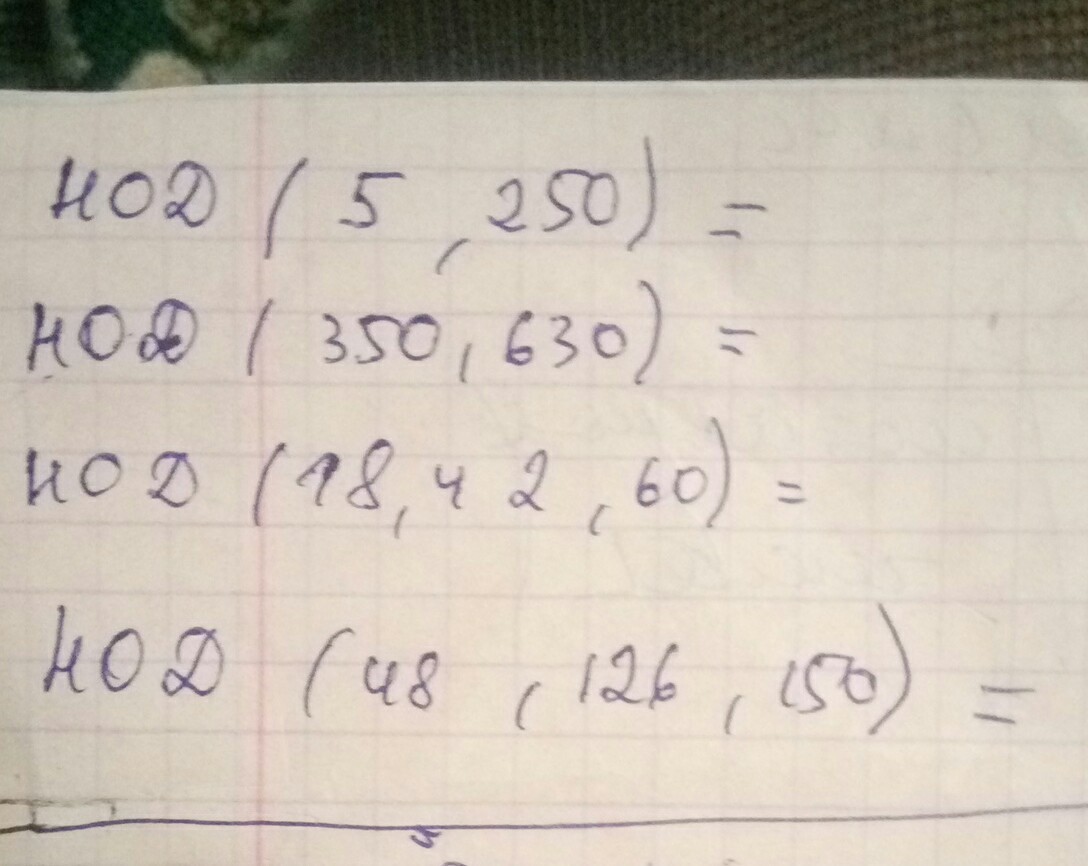 НОД (5, 250) =
НОД (350, 630) =
НОД (18, 42, 60) =
НОД (48, 126, 150) =